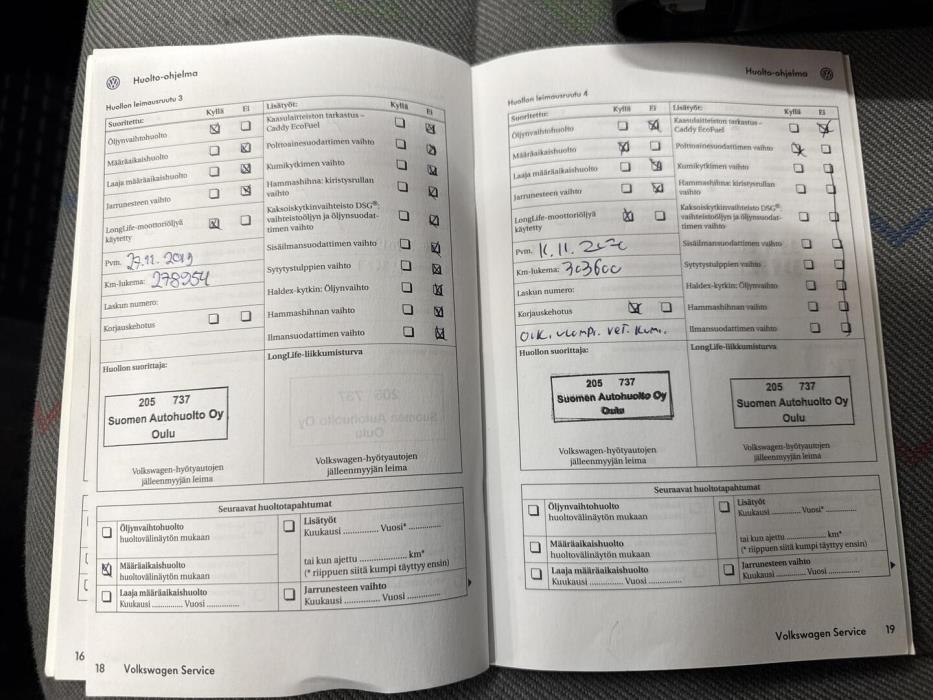 Huolto-ohjelma
Huollon leimausruutu 3
Suoritettu: Kyllä Ei Lisätyöt: Kyllä Ei
Öljynvaihtohuolto
Määräaikaishuolto
Laaja määräaikaishuolto
Jarrunesteen vaihto
LongLife-moottoriöljyä
käytetty
Pvm. 27.11.2019
Km-lukema: 278954
Laskun numero:
Korjauskehotus
Kaasulaitteiston tarkastus –
Caddy EcoFuel
Polttoainesuodattimen vaihto
Kumikytkimen vaihto
Hammashihna: kiristysrullan
vaihto
Kaksoiskytkinvaihteisto DSG®:
vaihteistoöljyn ja öljynsuodat-
timen vaihto
Sisäilmansuodattimen vaihto
Sytytystulppien vaihto
Haldex-kytkin: Öljynvaihto
Hammashihnan vaihto
Ilmansuodattimen vaihto
Huollon suorittaja:
205 737
Suomen Autohuolto Oy
Oulu
Volkswagen-hyötyautojen
jälleenmyyjän leima
LongLife-liikkumisturva
Volkswagen-hyötyautojen
jälleenmyyjän leima
Seuraavat huoltotapahtumat
Öljynvaihtohuolto
huoltovälinäytön mukaan
Määräaikaishuolto
huoltovälinäytön mukaan
Laaja määräaikaishuolto
Kuukausi ............. Vuosi ..............
Lisätyöt
Kuukausi .............. Vuosi* .............
tai kun ajettu .................. km*
(* riippuen siitä kumpi täyttyy ensin)
Jarrunesteen vaihto
Kuukausi .............. Vuosi .............
16
18 Volkswagen Service
Huolto-ohjelma
Huollon leimausruutu 4
Suoritettu: Kyllä Ei Lisätyöt: Kyllä Ei
Öljynvaihtohuolto
Määräaikaishuolto
Laaja määräaikaishuolto
Jarrunesteen vaihto
LongLife-moottoriöljyä
käytetty
Pvm. 11.11.2020
Km-lukema: 303600
Laskun numero:
Korjauskehotus
Kaasulaitteiston tarkastus –
Caddy EcoFuel
Polttoainesuodattimen vaihto
Kumikytkimen vaihto
Hammashihna: kiristysrullan
vaihto
Kaksoiskytkinvaihteisto DSG®:
vaihteistoöljyn ja öljynsuodat-
timen vaihto
Sisäilmansuodattimen vaihto
Sytytystulppien vaihto
Haldex-kytkin: Öljynvaihto
Hammashihnan vaihto
Ilmansuodattimen vaihto
Huollon suorittaja:
205 737
Suomen Autohuolto Oy
Oulu
Volkswagen-hyötyautojen
jälleenmyyjän leima
LongLife-liikkumisturva
205 737
Suomen Autohuolto Oy
Oulu
Volkswagen-hyötyautojen
jälleenmyyjän leima
Seuraavat huoltotapahtumat
Öljynvaihtohuolto
huoltovälinäytön mukaan
Määräaikaishuolto
huoltovälinäytön mukaan
Laaja määräaikaishuolto
Kuukausi ............. Vuosi ..............
Lisätyöt
Kuukausi .............. Vuosi* .............
tai kun ajettu .................. km*
(* riippuen siitä kumpi täyttyy ensin)
Jarrunesteen vaihto
Kuukausi .............. Vuosi .............
Volkswagen Service 19